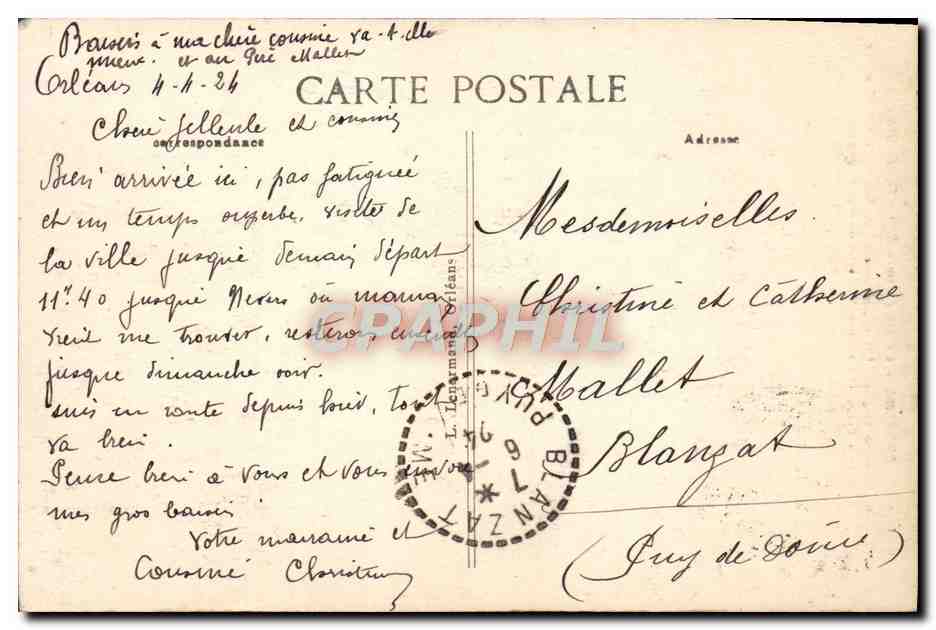 Baisers à ma chère cousine va-t-elle
mieux. et au Père Mallet
Orléans 4-4-24
CARTE POSTALE
Chère filleule et cousine
correspondance
Adresse
Bien arrivée ici, pas fatiguée
et un temps superbe, visite de
la ville jusque demain départ
11h40 jusque Nevers où maman
vient me trouver, resterons ensemble
jusque dimanche soir.
suis en route depuis hier, tout
va bien.
Pense bien à vous et vous envoie
mes gros baisers
Votre marraine et
Cousine Christine
L. Lenormand, Orléans
Mesdemoiselles
Christine et Catherine
Mallet
Blanzat
(Puy de Dôme)
BLANZAT * PUY-DE-DOME
7
6 4
24
CPAPHIL.COM